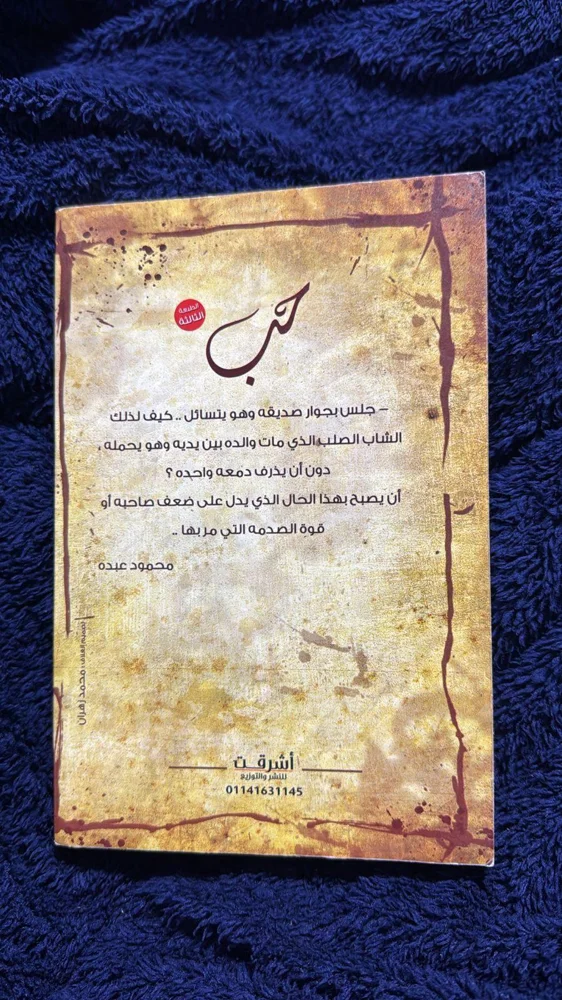 الطبعة
الثالثة
حب
– جلس بجوار صديقه وهو يتسائل .. كيف لذلك
الشاب الصلب الذي مات والده بين يديه وهو يحمله ،
دون أن يذرف دمعه واحده ؟
أن يصبح بهذا الحال الذي يدل على ضعف صاحبه أو
قوة الصدمه التي مر بها ..
محمود عبده
تصميم الغلاف : محمد زهران
أشرقت
للنشر والتوزيع
01141631145